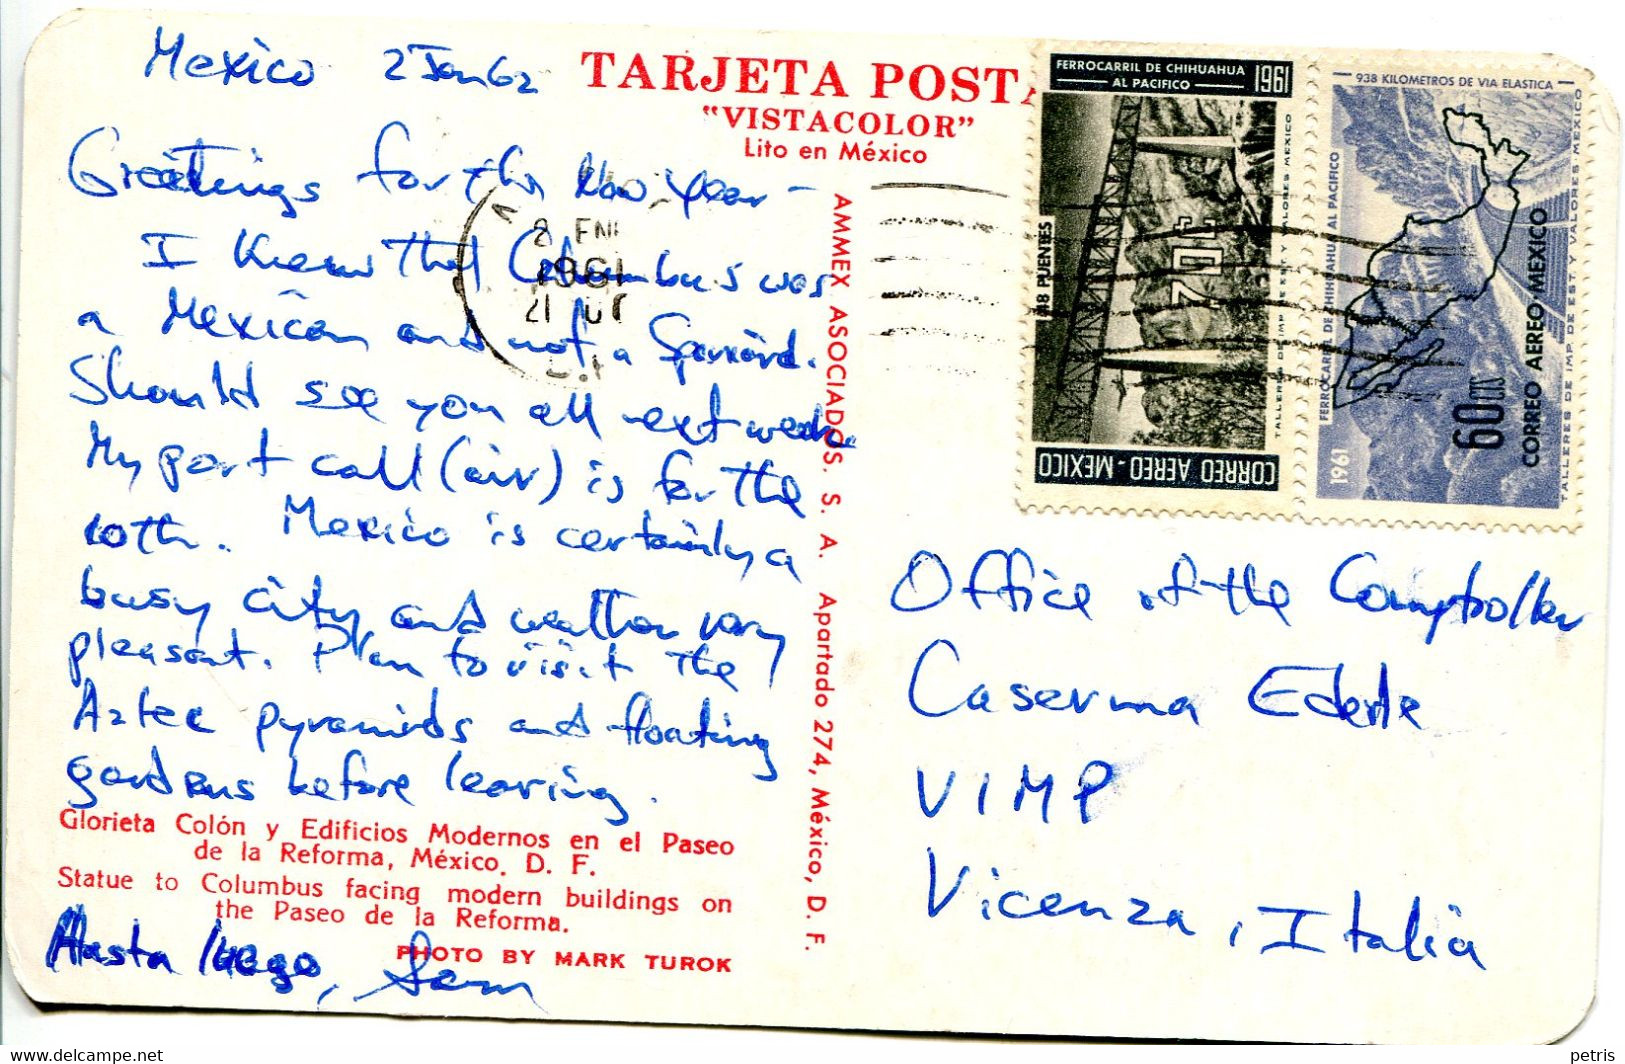 Mexico 2 Jan 62
Greetings for the New Year –
I knew that Columbus was
a Mexican and not a Spaniard.
Should see you all next week.
My port call (air) is for the
10th. Mexico is certainly a
busy city and weather very
pleasant. Plan to visit the
Aztec pyramids and floating
gardens before leaving.
Glorieta Colón y Edificios Modernos en el Paseo
de la Reforma, México, D. F.
Statue to Columbus facing modern buildings on
the Paseo de la Reforma.
PHOTO BY MARK TUROK
Hasta luego, Sam
TARJETA POSTA
"VISTACOLOR"
Lito en México
AMMEX ASOCIADOS. S. A. Apartado 274, México, D. F.
8 ENE
1961
21
FERROCARRIL DE CHIHUAHUA
AL PACIFICO
1961
48 PUENTES
70¢
TALLERES DE IMP DE EST Y VALORES MEXICO
CORREO AEREO - MEXICO
938 KILOMETROS DE VIA ELASTICA
FERROCARRIL DE CHIHUAHUA AL PACIFICO
1961
60 CTS
CORREO AEREO MEXICO
TALLERES DE IMP. DE EST. Y VALORES-MEXICO
Office of the Comptroller
Caserma Ederle
VIMP
Vicenza, Italia
www.delcampe.net
petris